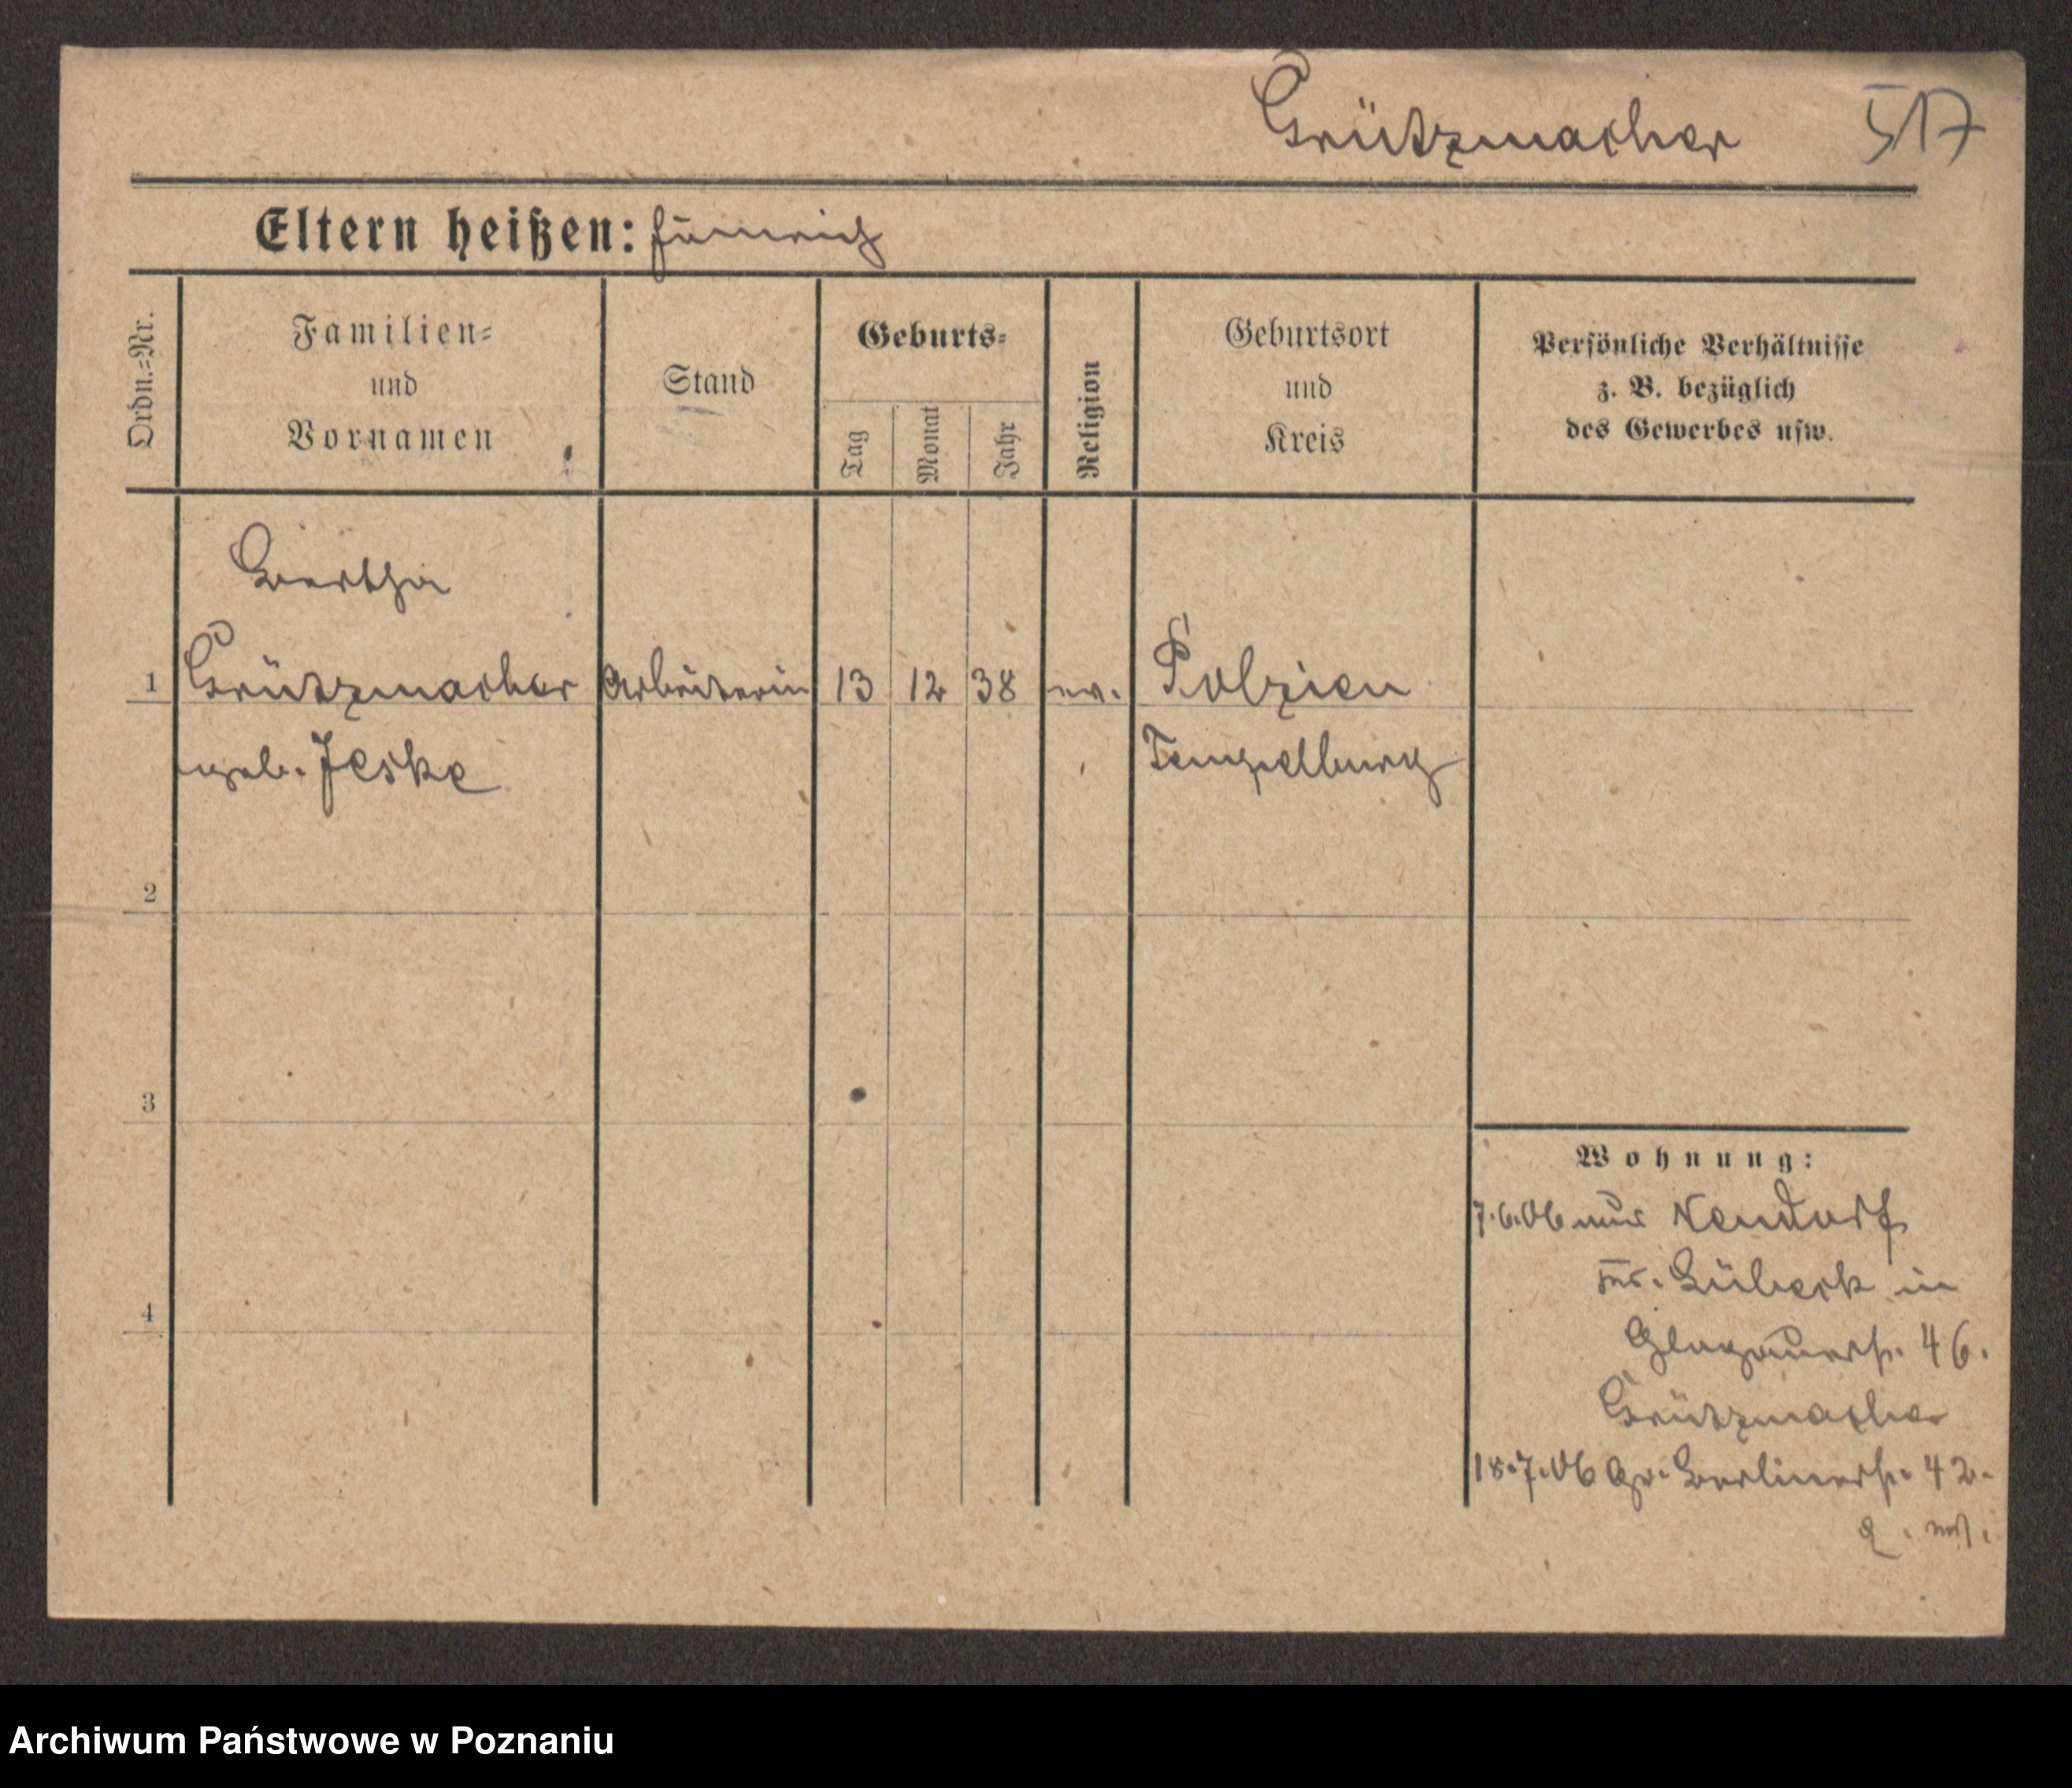 Grützmacher 517
Eltern heißen:
Ordn.=Nr.
Familien=
und
Vornamen
Stand
Geburts=
Tag
Monat
Jahr
Religion
Geburtsort
und
Kreis
Persönliche Verhältnisse
z. B. bezüglich
des Gewerbes usw.
Bertha
1 Grützmacher Arbeiterin 13 12 38 ev. Polzien
geb. Jeske Tempelburg
2
3
4
Wohnung:
7.6.06 aus Neudorf
Kr. Lübeck in
Glogauerstr. 46.
Grützmacher
18.7.06 Gr. Berlinerstr. 42.
Archiwum Państwowe w Poznaniu